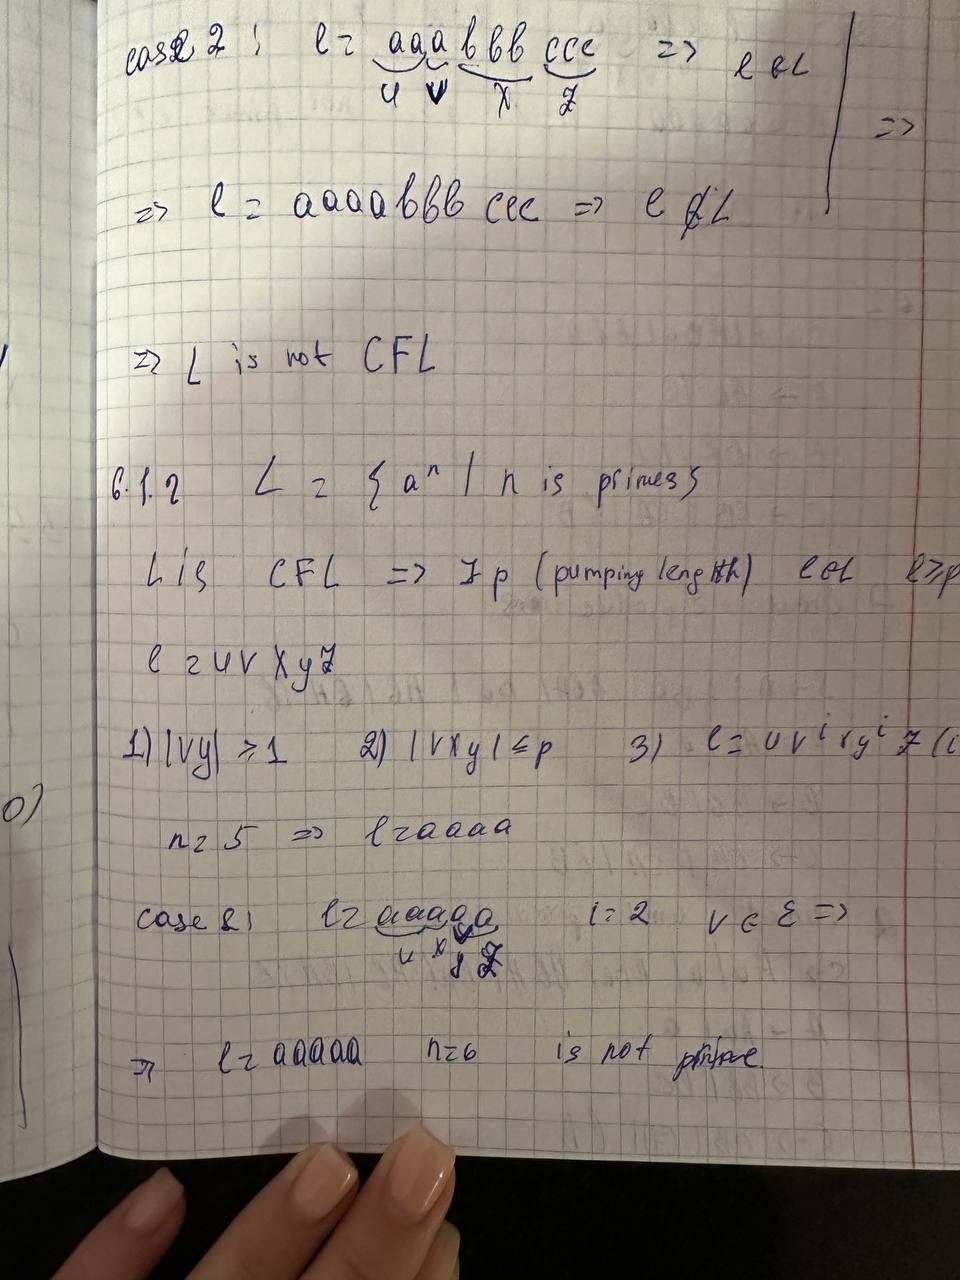 case 2 : l = aaa bbb ccc => l ∈ L
u v x z
=>
=> l = aaaa bbb ccc => l ∉ L
=> L is not CFL
6.1.2 L = { aⁿ | n is primes}
L is CFL => ∃ p (pumping length) l ∈ L l ≥ p
l = uvxyz
1) |vy| ≥ 1 2) |vxy| ≤ p 3) l = uvⁱxyⁱz (i
0)
n = 5 => l = aaaa
case 2: l = aaaaa i = 2 v ∈ ε =>
u x y z
=> l = aaaaa n=6 is not prime.